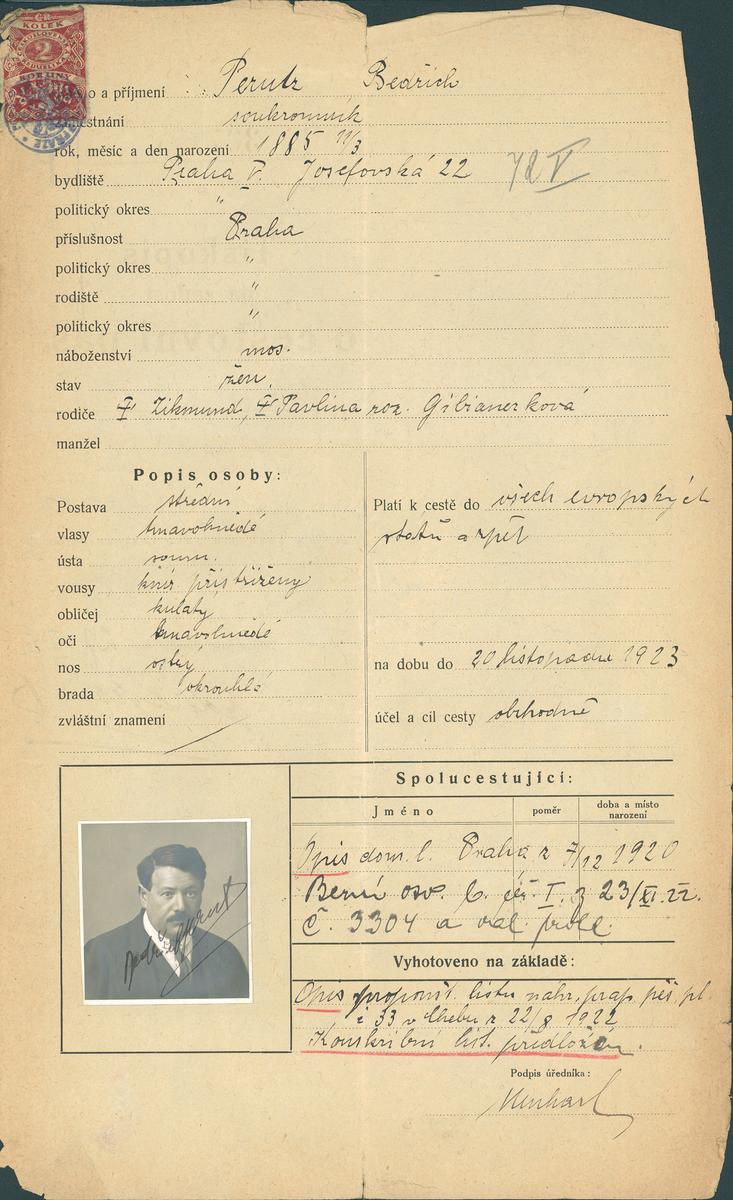 KOLEK
2
KORUNY
o a příjmení Perutz Bedřich
městnání soukromník
rok, měsíc a den narození 1885 11/3
bydliště Praha V. Josefovská 22
politický okres "
příslušnost Praha
politický okres "
rodiště "
politický okres "
náboženství mos.
stav žen.
rodiče Zikmund, Pavlina roz.
manžel
Popis osoby:
Postava střední
vlasy tmavohnědé
ústa soum.
vousy knír přistřižený
obličej kulatý
oči tmavohnědé
nos ostrý
brada okrouhlá
zvláštní znamení
Platí k cestě do všech evropských
států a zpět
na dobu do 20 listopadu 1923
účel a cil cesty obchodně
Spolucestující:
Jméno poměr doba a místo narození
Opis dom. l. Praha z 7/12 1920
Berní osv. b. I. z 23/XI. 22.
č. 3304 a val. prohl.
Vyhotoveno na základě:
Opis propoušt. listu nahr. prap. pěš. pl.
č 33 v Chebu z 22/8 1922
Konskribní list. předložen.
Podpis úředníka: